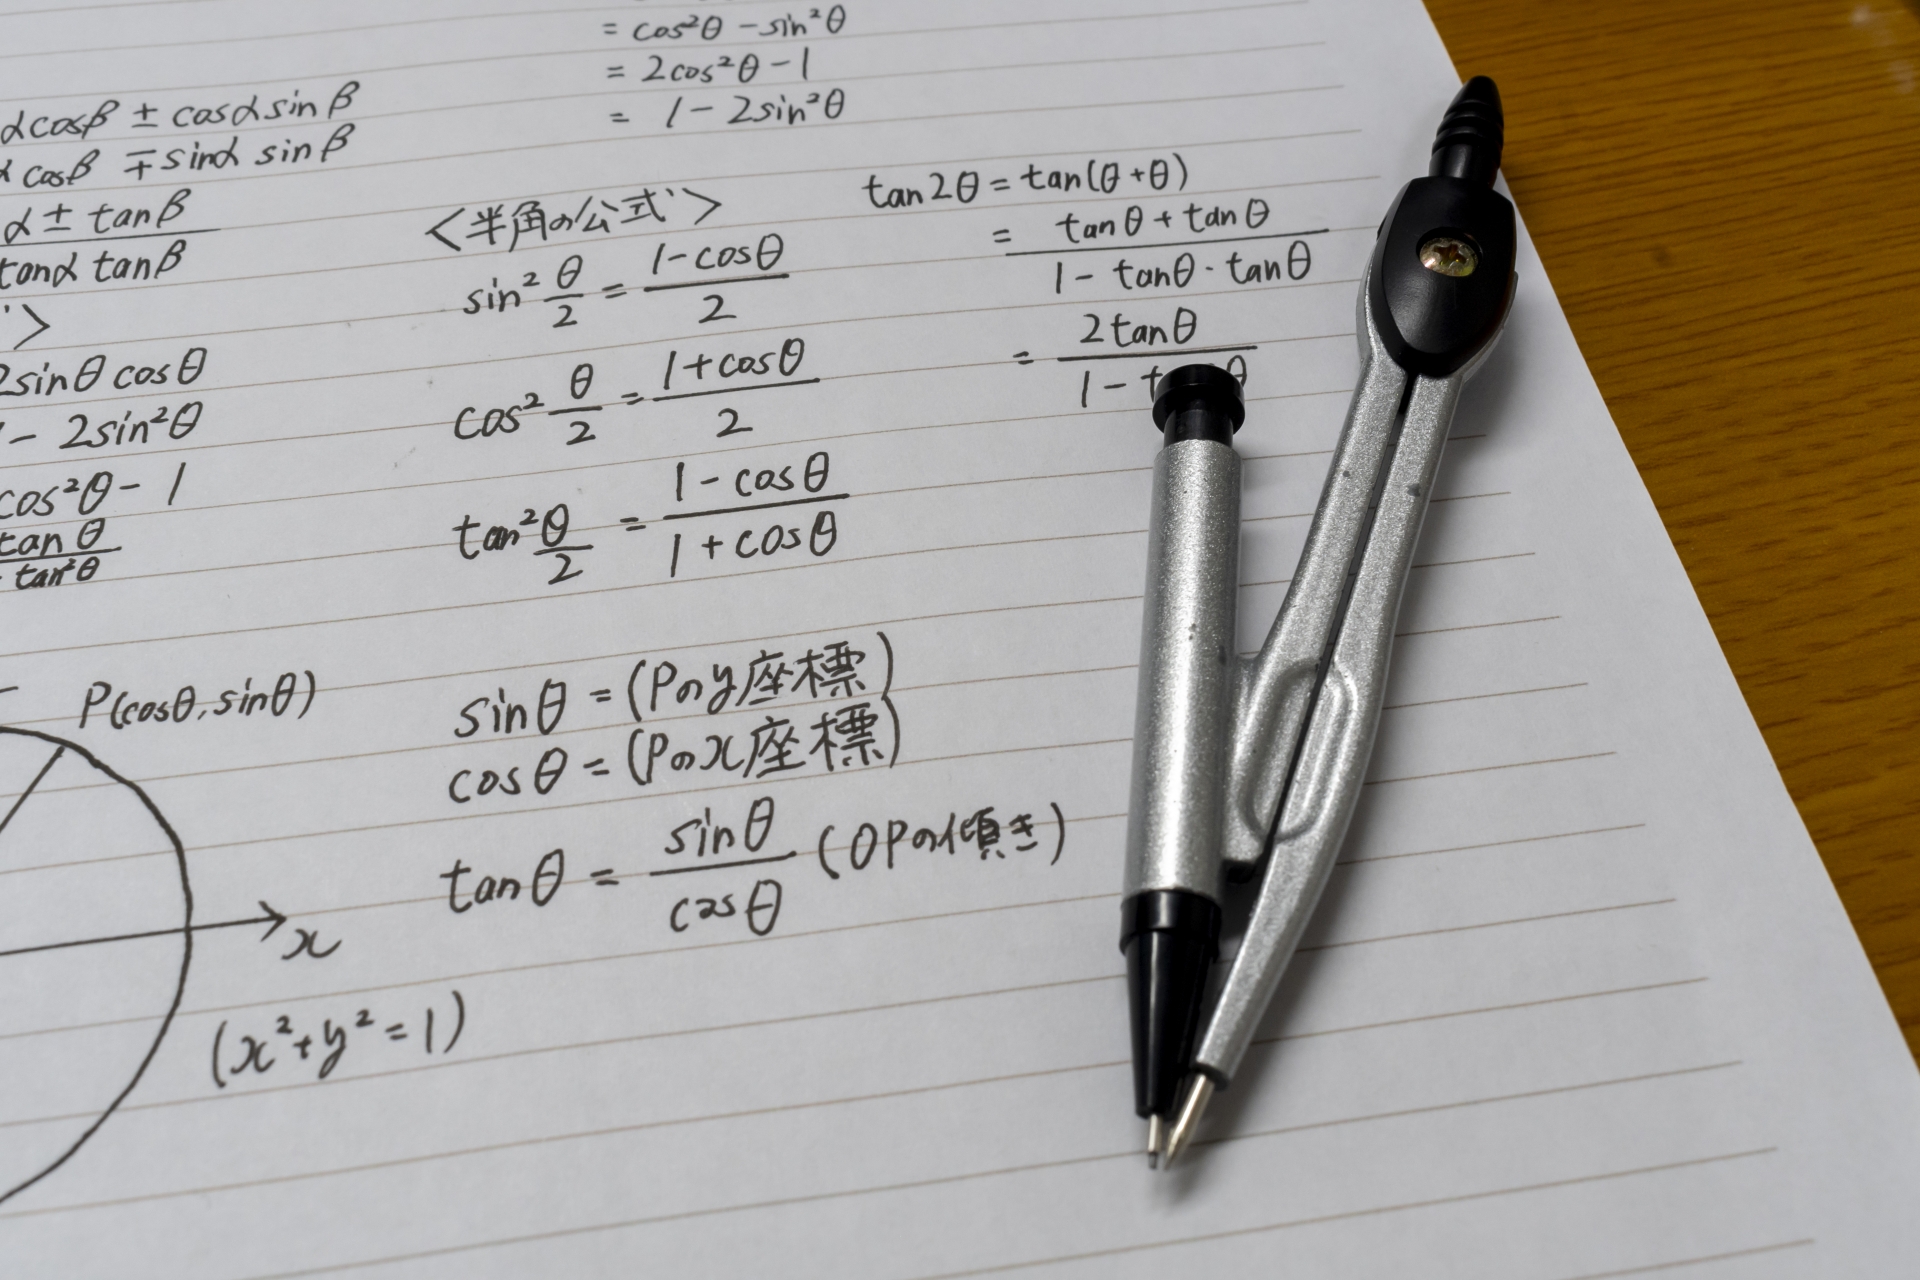 = cos²θ - sin²θ
= 2cos²θ - 1
= 1 - 2sin²θ
αcosβ ± cosαsinβ
cosβ ∓ sinα sinβ
α ± tanβ
tanα tanβ
〉
2sinθcosθ
- 2sin²θ
cos²θ - 1
tanθ
tan²θ
〈半角の公式〉
sin² θ/2 = (1-cosθ)/2
cos² θ/2 = (1+cosθ)/2
tan² θ/2 = (1-cosθ)/(1+cosθ)
tan2θ = tan(θ+θ)
= (tanθ + tanθ)/(1 - tanθ·tanθ)
= 2tanθ/(1 - t θ)
P(cosθ, sinθ)
x
(x²+y²=1)
sinθ = (Pのy座標)
cosθ = (Pのx座標)
tanθ = sinθ/cosθ (OPの傾き)